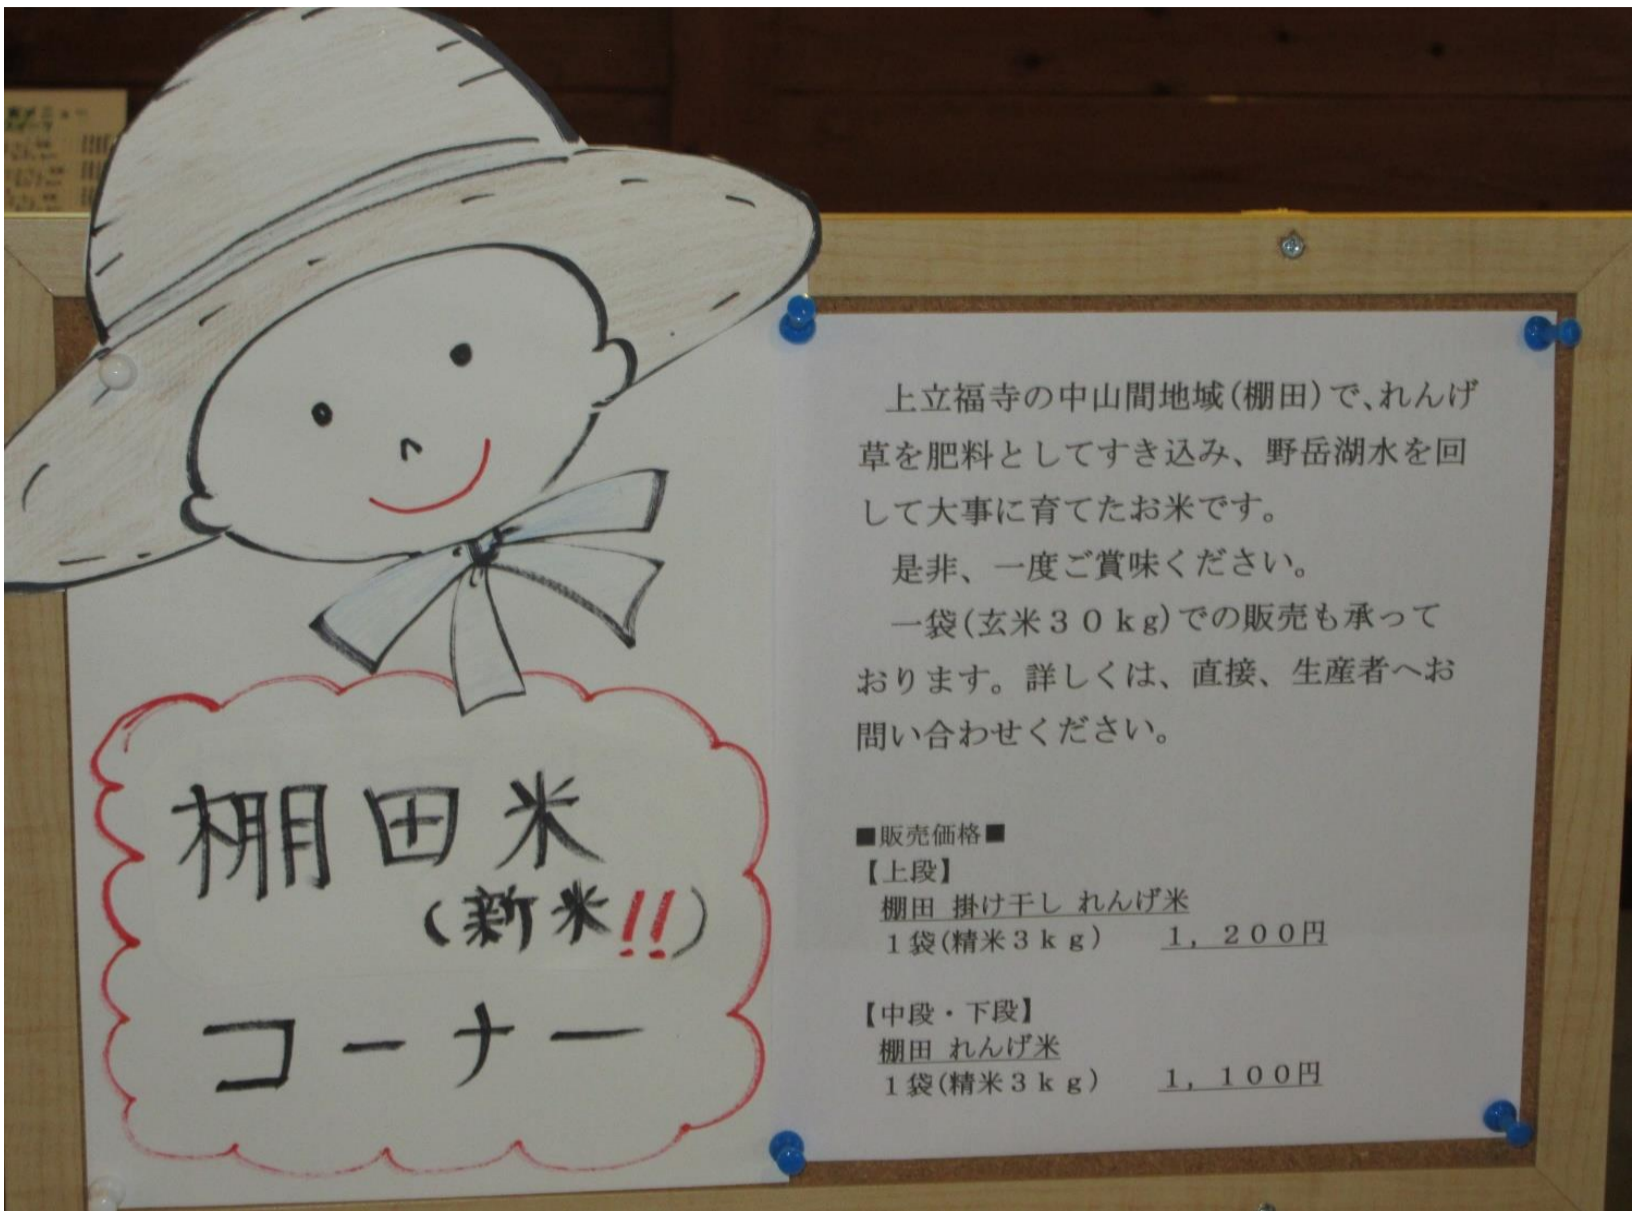 棚田米
(新米!!)
コーナー
上立福寺の中山間地域(棚田)で、れんげ
草を肥料としてすき込み、野岳湖水を回
して大事に育てたお米です。
是非、一度ご賞味ください。
一袋(玄米30kg)での販売も承って
おります。詳しくは、直接、生産者へお
問い合わせください。
■販売価格■
【上段】
棚田 掛け干し れんげ米
1袋(精米3kg) 1,200円
【中段・下段】
棚田 れんげ米
1袋(精米3kg) 1,100円